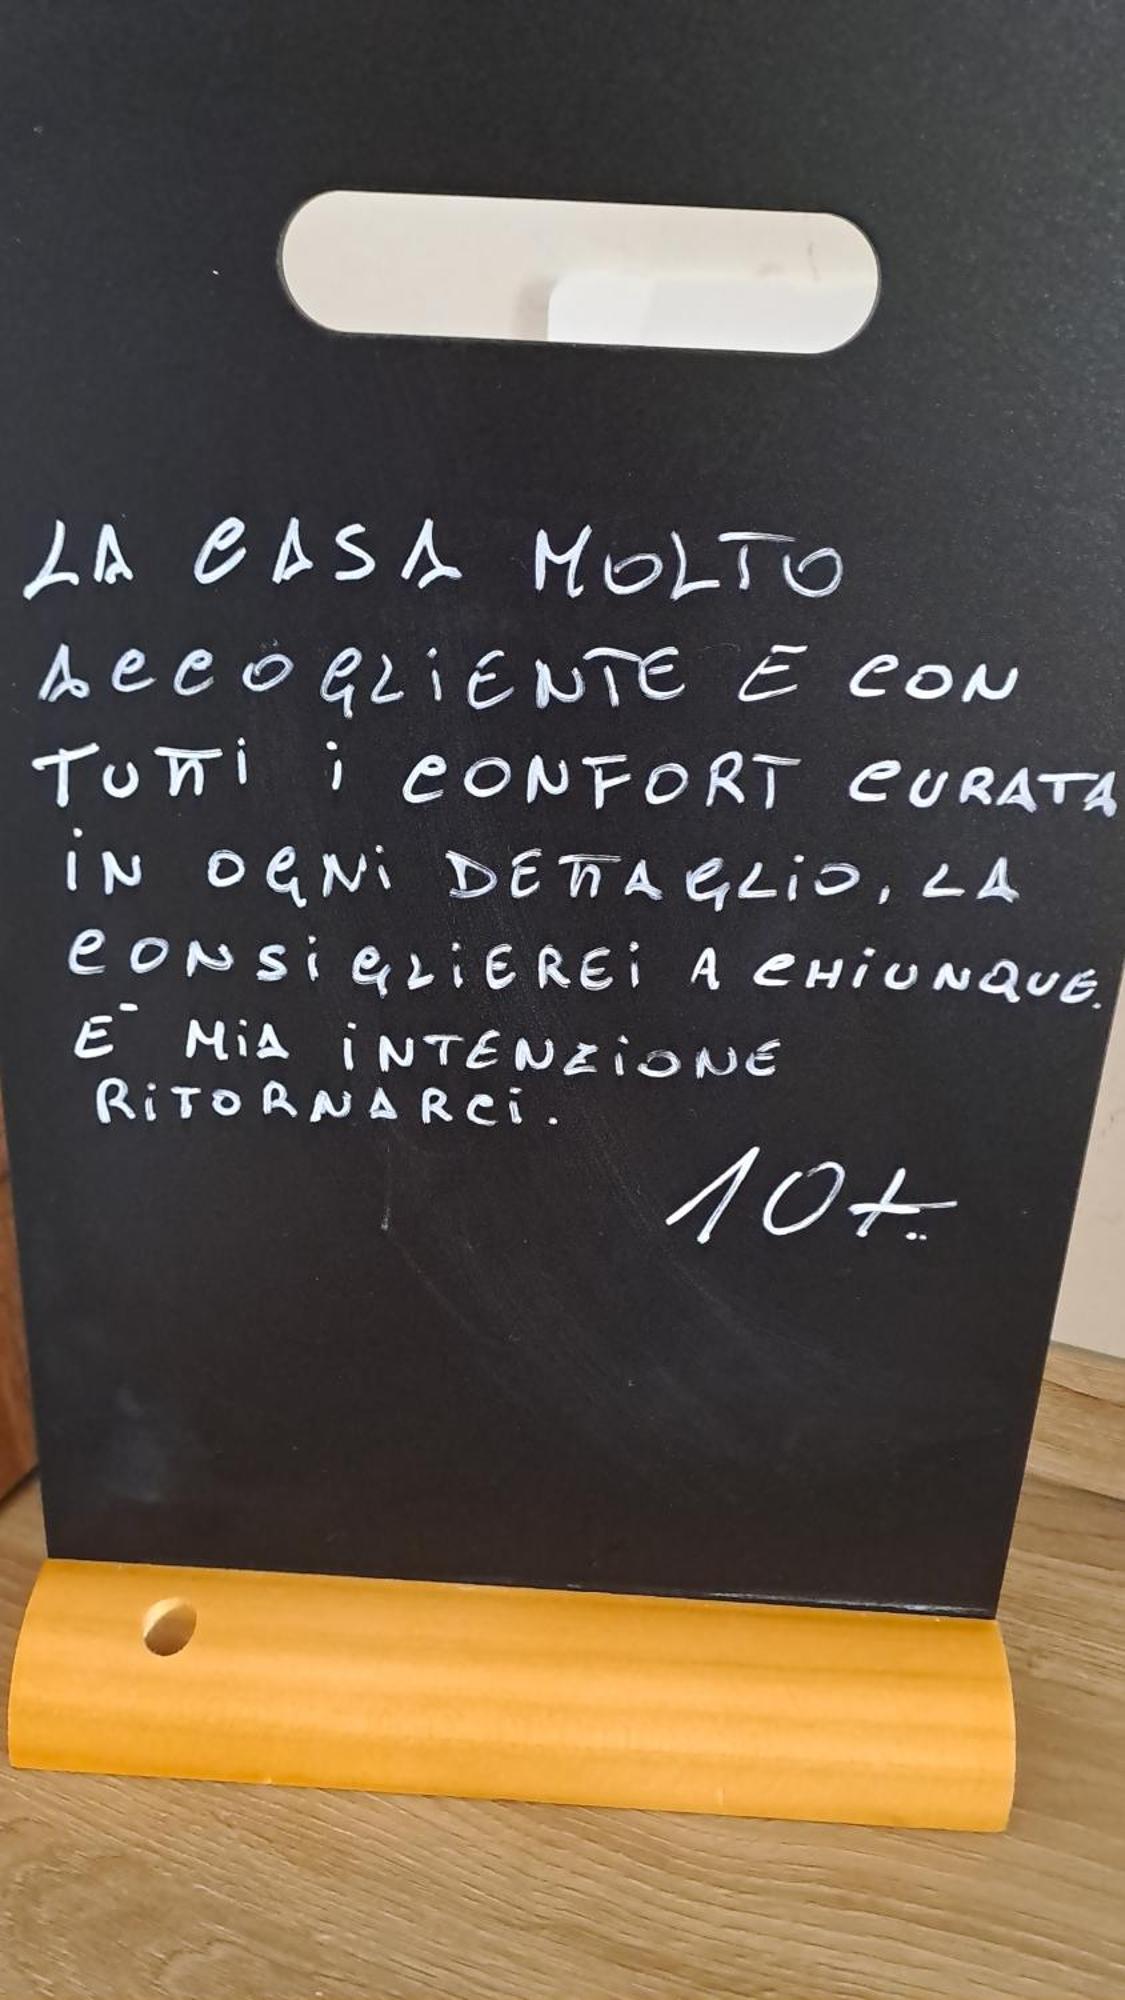 LA CASA MOLTO
ACCOGLIENTE E CON
TUTTI I CONFORT CURATA
IN OGNI DETTAGLIO, LA
CONSIGLIEREI A CHIUNQUE.
E' MIA INTENZIONE
RITORNARCI.
10+..